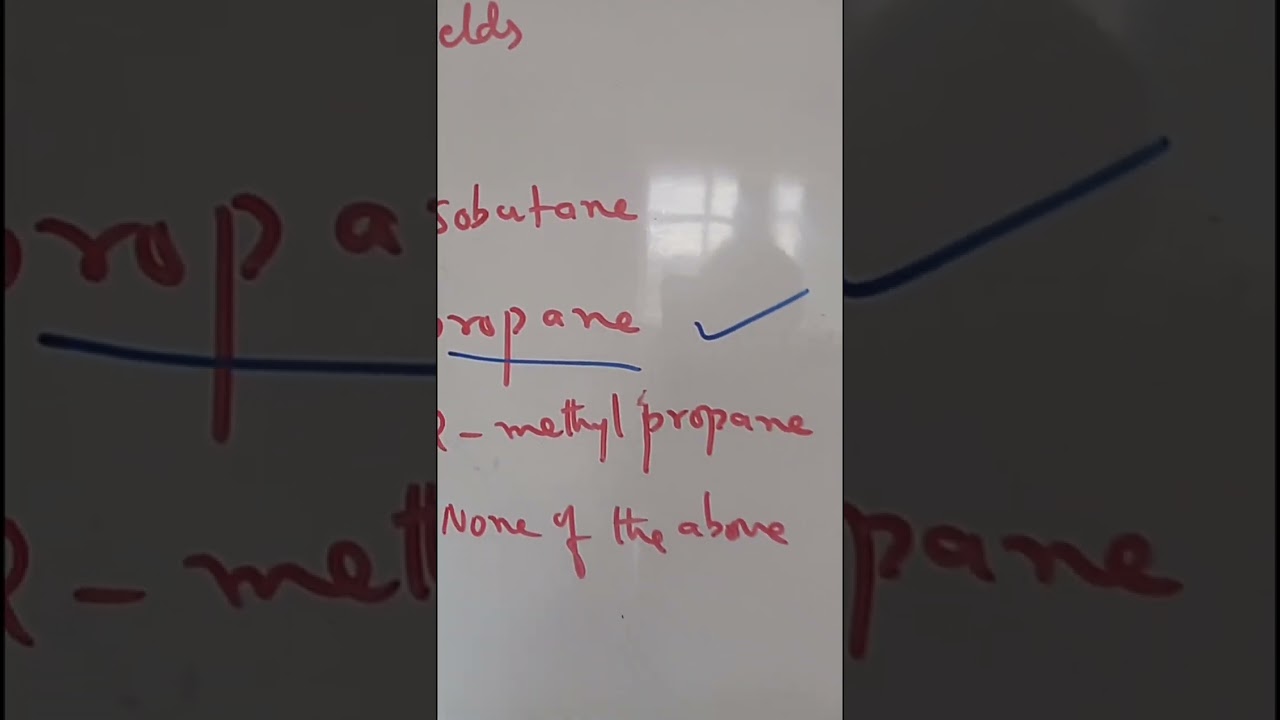 elds
sobutane
propane
2-methyl propane
None of the above